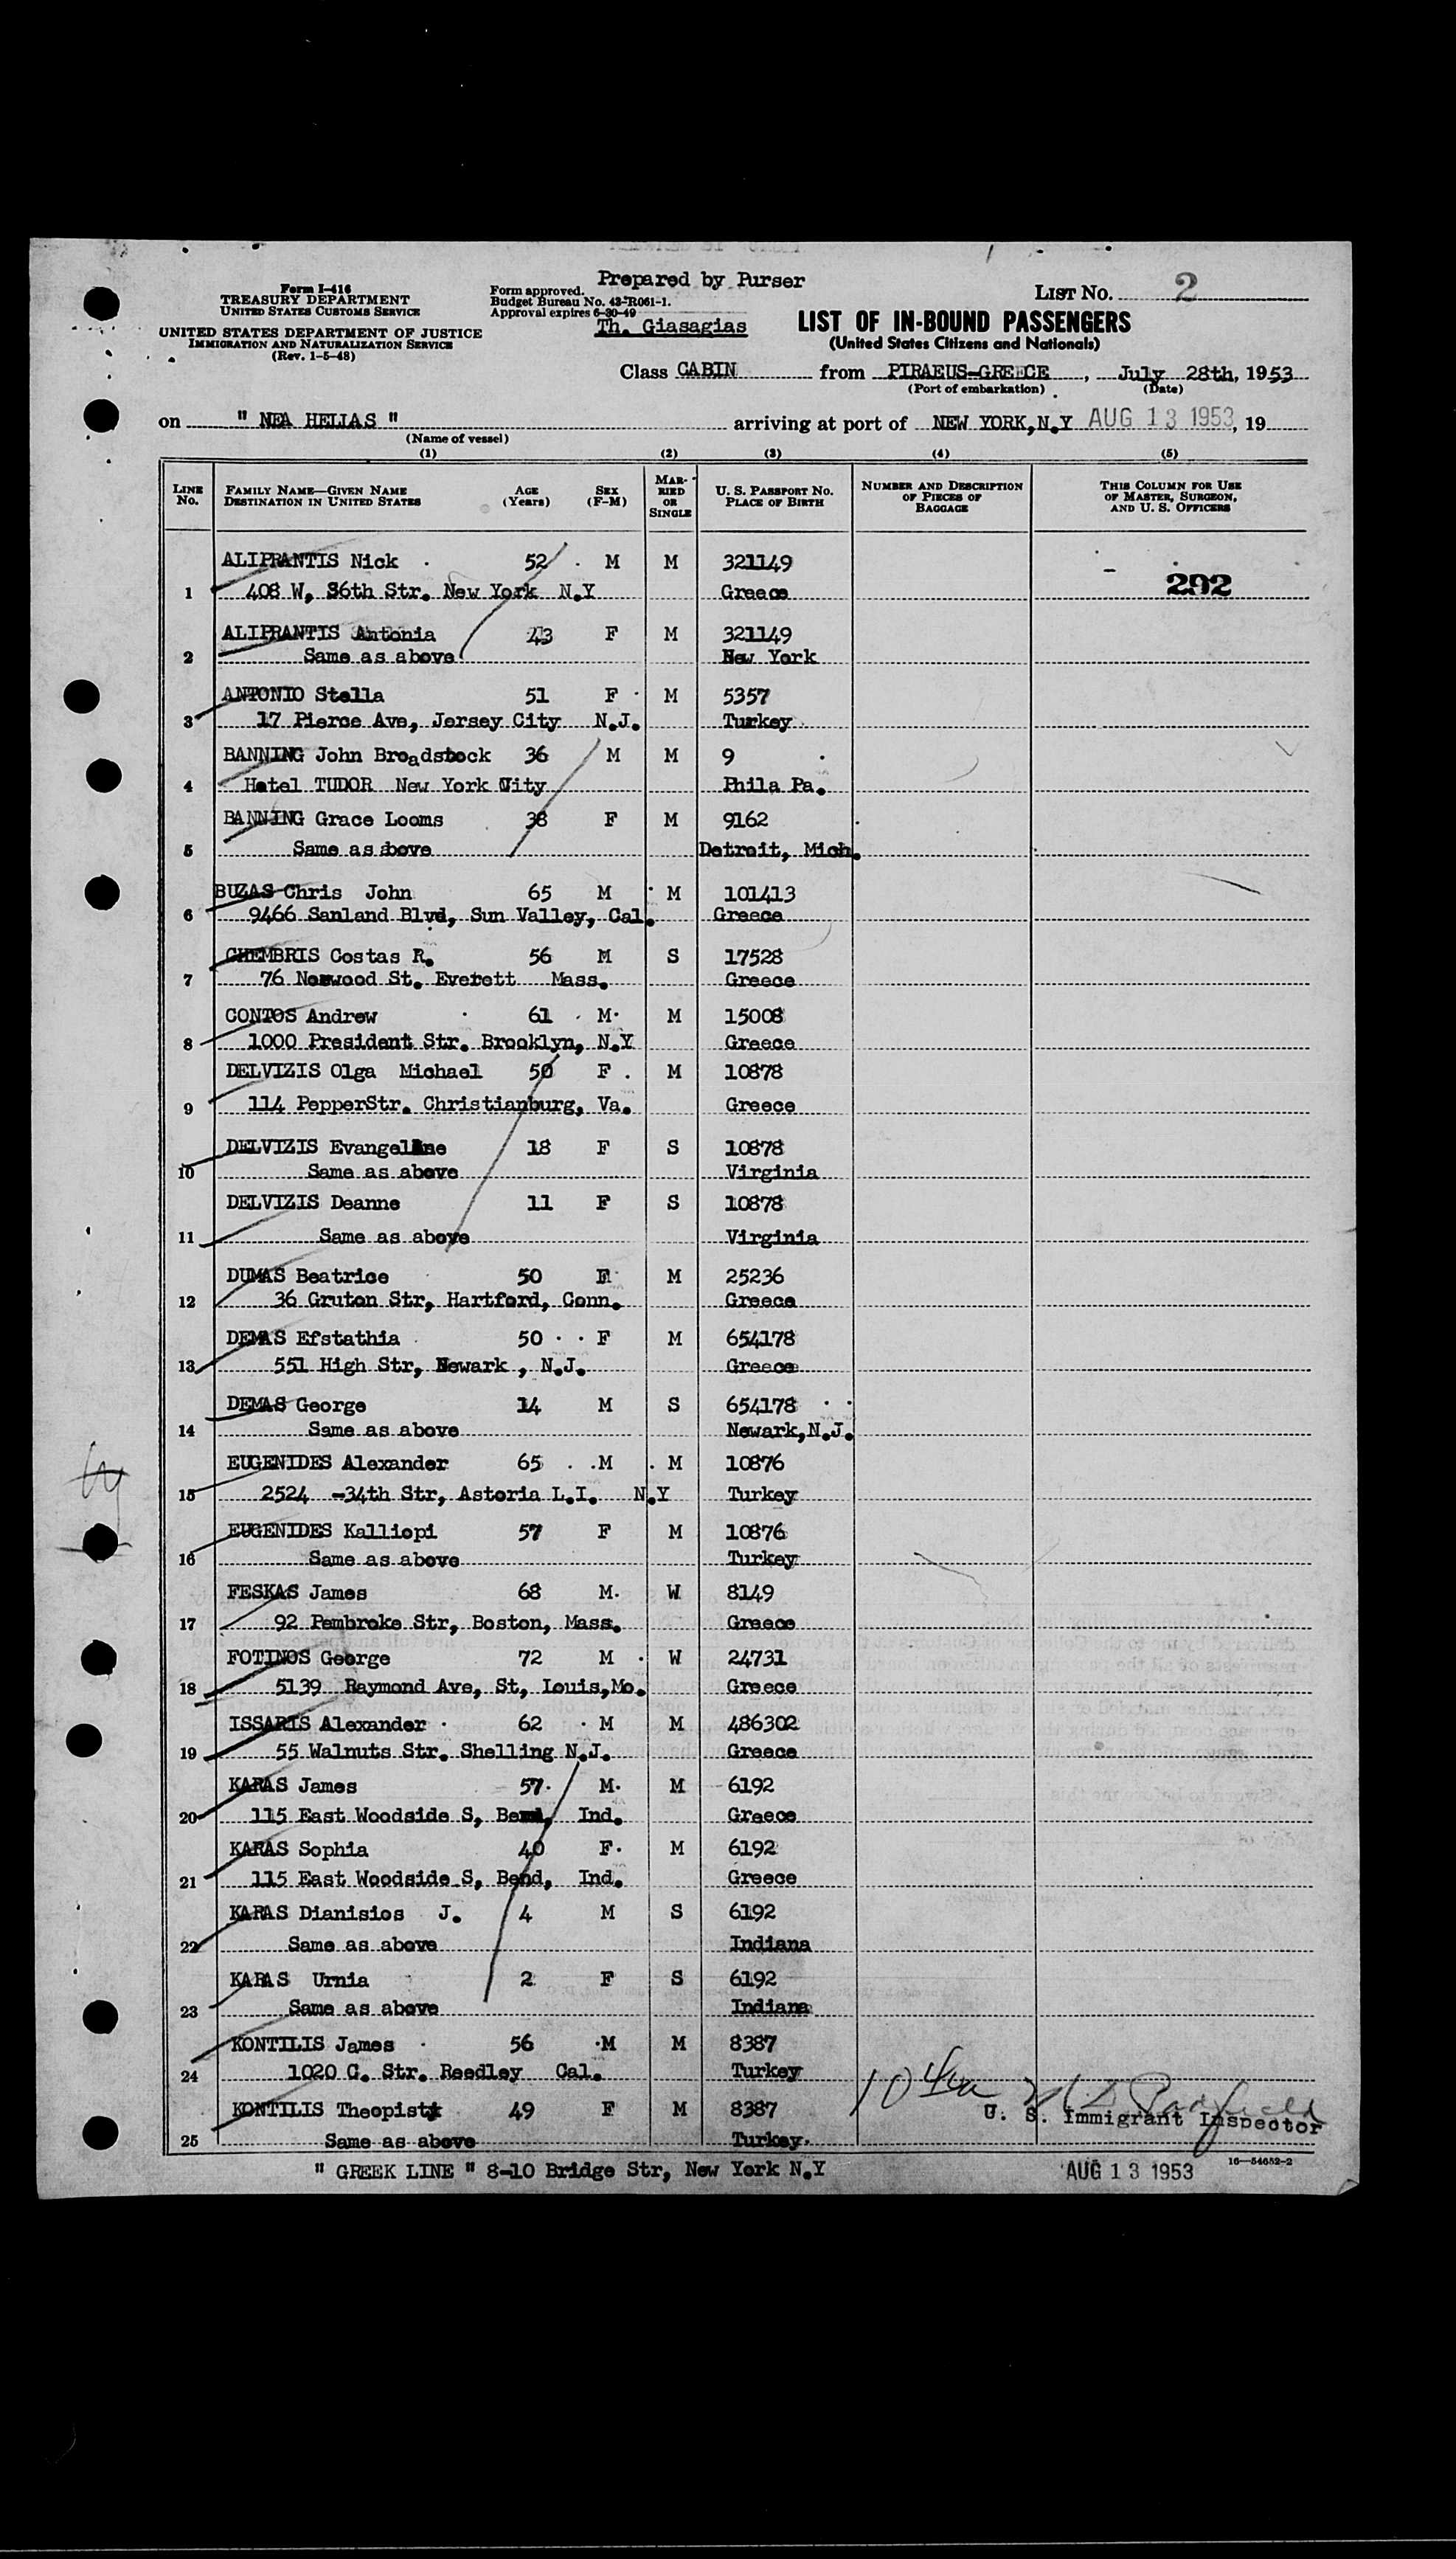 Prepared by Purser
Th. Giasagias
Form I-416
TREASURY DEPARTMENT
UNITED STATES CUSTOMS SERVICE
UNITED STATES DEPARTMENT OF JUSTICE
IMMIGRATION AND NATURALIZATION SERVICE
(Rev. 1-5-48)
Form approved.
Budget Bureau No. 43-R061-1.
Approval expires 6-30-49
LIST No. 2
LIST OF IN-BOUND PASSENGERS
(United States Citizens and Nationals)
Class CABIN from PIRAEUS-GREECE, July 28th, 1953
(Port of embarkation) (Date)
on " NEA HELIAS " arriving at port of NEW YORK, N.Y AUG 13 1953, 19
(Name of vessel)
(1) (2) (3) (4) (5)
LINE No. FAMILY NAME—GIVEN NAME DESTINATION IN UNITED STATES AGE (Years) SEX (F-M) MARRIED OR SINGLE U. S. PASSPORT No. PLACE OF BIRTH NUMBER AND DESCRIPTION OF PIECES OF BAGGAGE THIS COLUMN FOR USE OF MASTER, SURGEON, AND U. S. OFFICERS
ALIPRANTIS Nick 52 M M 321149
1 408 W, 36th Str. New York N.Y Greece 292
ALIPRANTIS Antonia 43 F M 321149
2 Same as above New York
ANTONIO Stella 51 F M 5357
3 17 Pierce Ave, Jersey City N.J. Turkey
BANNING John Broadstock 36 M M 9
4 Hotel TUDOR New York City Phila Pa.
BANNING Grace Looms 38 F M 9162
5 Same as above Detroit, Mich.
BUZAS Chris John 65 M M 101413
6 9466 Sanland Blvd, Sun Valley, Cal. Greece
CHEMBRIS Costas R. 56 M S 17528
7 76 Norwood St. Everett Mass. Greece
CONTOS Andrew 61 M M 15008
8 1000 President Str. Brooklyn, N.Y Greece
DELVIZIS Olga Michael 50 F M 10878
9 114 PepperStr. Christianburg, Va. Greece
DELVIZIS Evangeline 18 F S 10878
10 Same as above Virginia
DELVIZIS Deanne 11 F S 10878
11 Same as above Virginia
DUMAS Beatrice 50 F M 25236
12 36 Gruton Str, Hartford, Conn. Greece
DEMAS Efstathia 50 F M 654178
13 551 High Str, Newark , N.J. Greece
DEMAS George 14 M S 654178
14 Same as above Newark, N.J.
EUGENIDES Alexander 65 M M 10876
15 2524 -34th Str, Astoria L.I. N.Y Turkey
EUGENIDES Kalliopi 57 F M 10876
16 Same as above Turkey
FESKAS James 68 M W 8149
17 92 Pembroke Str, Boston, Mass. Greece
FOTINOS George 72 M W 24731
18 5139 Raymond Ave, St, Louis, Mo. Greece
ISSARIS Alexander 62 M M 486302
19 55 Walnuts Str. Shelling N.J. Greece
KARAS James 57 M M 6192
20 115 East Woodside S, Bend, Ind. Greece
KARAS Sophia 40 F M 6192
21 115 East Woodside S, Bend, Ind. Greece
KARAS Dianisios J. 4 M S 6192
22 Same as above Indiana
KARAS Urnia 2 F S 6192
23 Same as above Indiana
KONTILIS James 56 M M 8387
24 1020 G. Str. Reedley Cal. Turkey
KONTILIS Theopisty 49 F M 8387
U. S. Immigrant Inspector
25 Same as above Turkey
" GREEK LINE " 8-10 Bridge Str, New York N.Y AUG 13 1953 16—54652-2